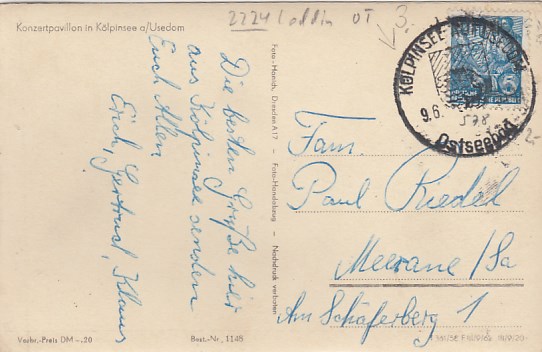 Konzertpavillon in Kölpinsee a/Usedom
2224 Loddin OT
3.
Die besten Grüße hier
aus Kölpinsee senden
Euch Allen
Erich, Gertrud, Klaus
Foto-Hanich, Dresden A 17 - Foto-Handabzug - Nachdruck verboten
KÖLPINSEE
9.6.
Ostseebad
578
2-
Fam.
Paul Riedel
Meerane/Sa
Am Schäferberg 1
Verbr.-Preis DM -.20
Best.-Nr. 1148